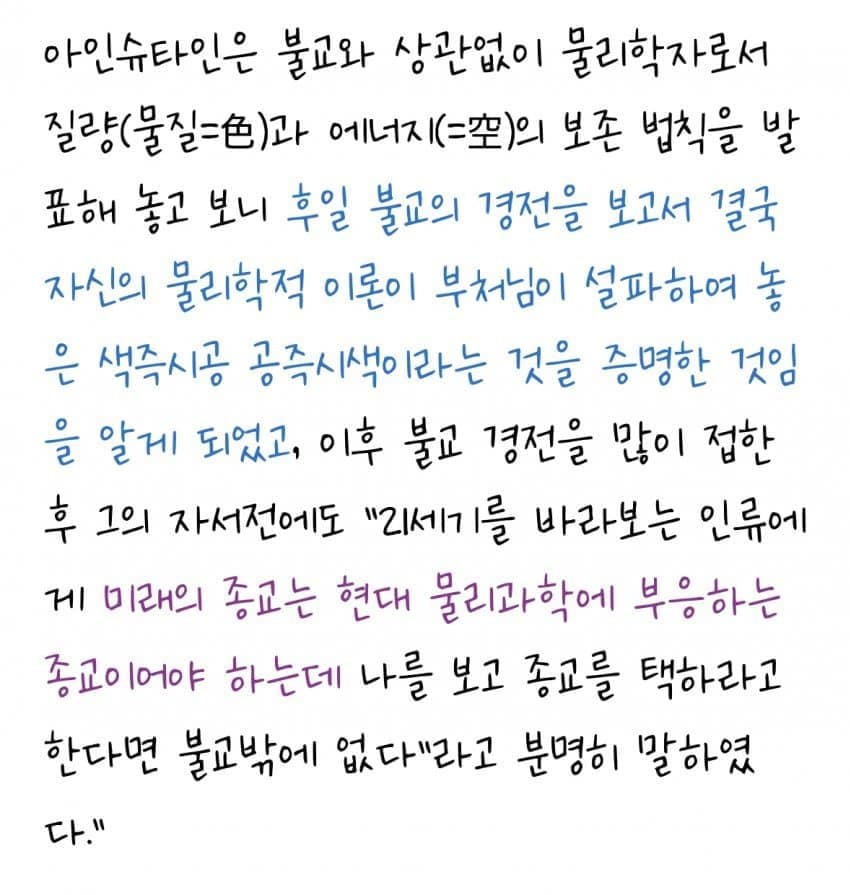 아인슈타인은 불교와 상관없이 물리학자로서
질량(물질=色)과 에너지(=空)의 보존 법칙을 발
표해 놓고 보니 후일 불교의 경전을 보고서 결국
자신의 물리학적 이론이 부처님이 설파하여 놓
은 색즉시공 공즉시색이라는 것을 증명한 것임
을 알게 되었고, 이후 불교 경전을 많이 접한
후 그의 자서전에도 "21세기를 바라보는 인류에
게 미래의 종교는 현대 물리과학에 부응하는
종교이어야 하는데 나를 보고 종교를 택하라고
한다면 불교밖에 없다"라고 분명히 말하였
다."